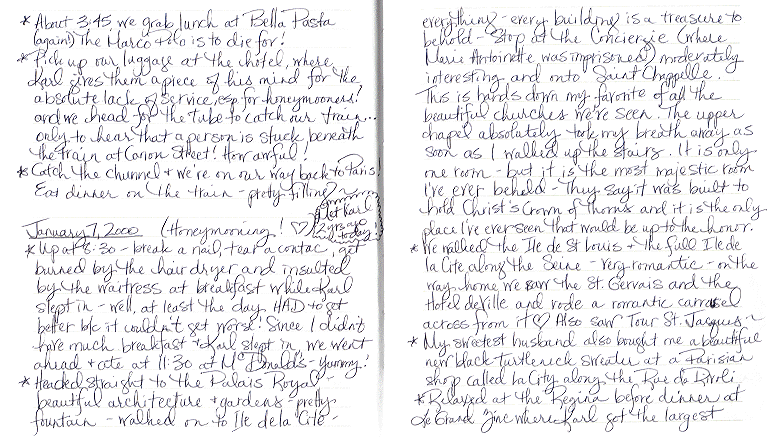 * About 3:45 we grab lunch at Bella Pasta
(again!) The Marco Polo is to die for!
* Pick up our luggage at the hotel, where
Karl gives them a piece of his mind for the
absolute lack of service, esp for honeymooners!
and we head for the tube to catch our train...
only to hear that a person is stuck beneath
the train at Canon Street! How awful!
* Catch the chunnel + we're on our way back to Paris!
Eat dinner on the train - pretty filling ~
January 7, 2000 (Honeymooning! ♡)
I met Karl
2 yrs ago
today!
* Up at 8:30 - break a nail, tear a contac, get
burned by the hair dryer and insulted
by the waitress at breakfast while Karl
slept in - well, at least the day HAD to get
better b/c it couldn't get worse! Since I didn't
have much breakfast + Karl slept in, we went
ahead + ate at 11:30 at McDonald's - yummy!
* Headed straight to the Palais Royal -
beautiful architecture + gardens - pretty
fountain - walked on to Ile de la Cité -
everything - every building is a treasure to
behold - Stop at the Conciergie (where
Marie Antoinette was imprisoned) moderately
interesting and onto Saint Chappelle.
This is hands down my favorite of all the
beautiful churches we've seen. The upper
chapel absolutely took my breath away as
soon as I walked up the stairs. It is only
one room - but it is the most majestic room
I've ever beheld - They say it was built to
hold Christ's Crown of Thorns and it is the only
place I've ever seen that would be up to the honor.
* We walked the Ile de St Louis + the full Ile de
la Cite along the Seine - very romantic - on the
way home we saw the St. Gervais and the
Hotel de Ville and rode a romantic carrosel
across from it ♡ Also saw Tour St. Jacques ~
* My sweetest husband also bought me a beautiful
new black turtleneck sweater at a Parisian
shop called La City along the Rue de Rivoli
* Relaxed at the Regina before dinner at
Le Grand Zinc where Karl got the largest